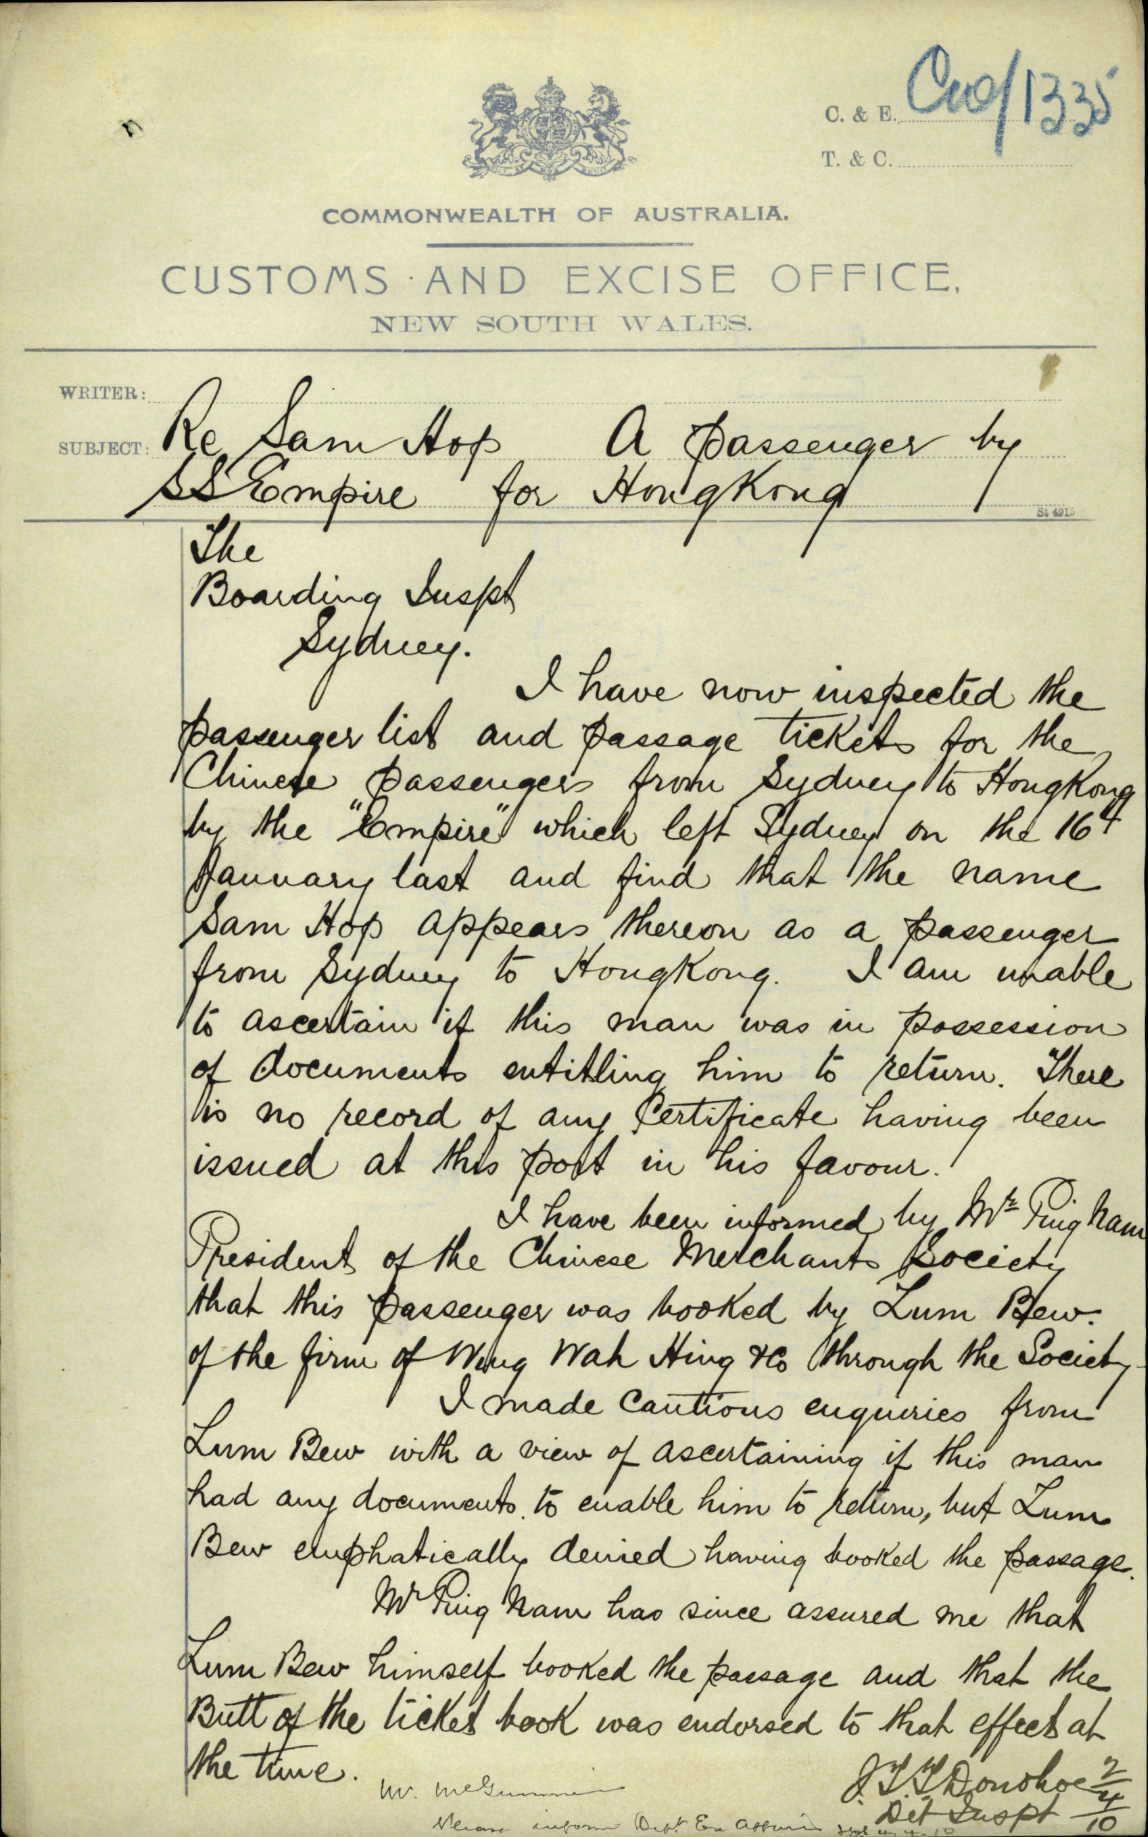 C. & E. Cue/1335
T. & C.
COMMONWEALTH OF AUSTRALIA.
CUSTOMS AND EXCISE OFFICE,
NEW SOUTH WALES.
WRITER:
SUBJECT: Re Sam Hop A passenger by
SS Empire for HongKong
St 4915
The
Boarding Inspt
Sydney.
I have now inspected the
passenger list and passage tickets for the
Chinese passengers from Sydney to HongKong
by the "Empire" which left Sydney on the 16th
January last and find that the name
Sam Hop appears thereon as a passenger
from Sydney to HongKong. I am unable
to ascertain if this man was in possession
of documents entitling him to return. There
is no record of any Certificate having been
issued at this port in his favour.
I have been informed by Mr Ping Nam
President of the Chinese Merchants Society
that this passenger was booked by Lum Bew.
of the firm of Wing Wah Hing & Co through the Society
I made cautious enquiries from
Lum Bew with a view of ascertaining if this man
had any documents to enable him to return, but Lum
Bew emphatically denied having booked the passage.
Mr Ping Nam has since assured me that
Lum Bew himself booked the passage and that the
Butt of the ticket book was endorsed to that effect at
the time.
J.T.T. Donohoe 2/4/10
Det Inspt
Mr.
Please inform Dept Ex Affairs